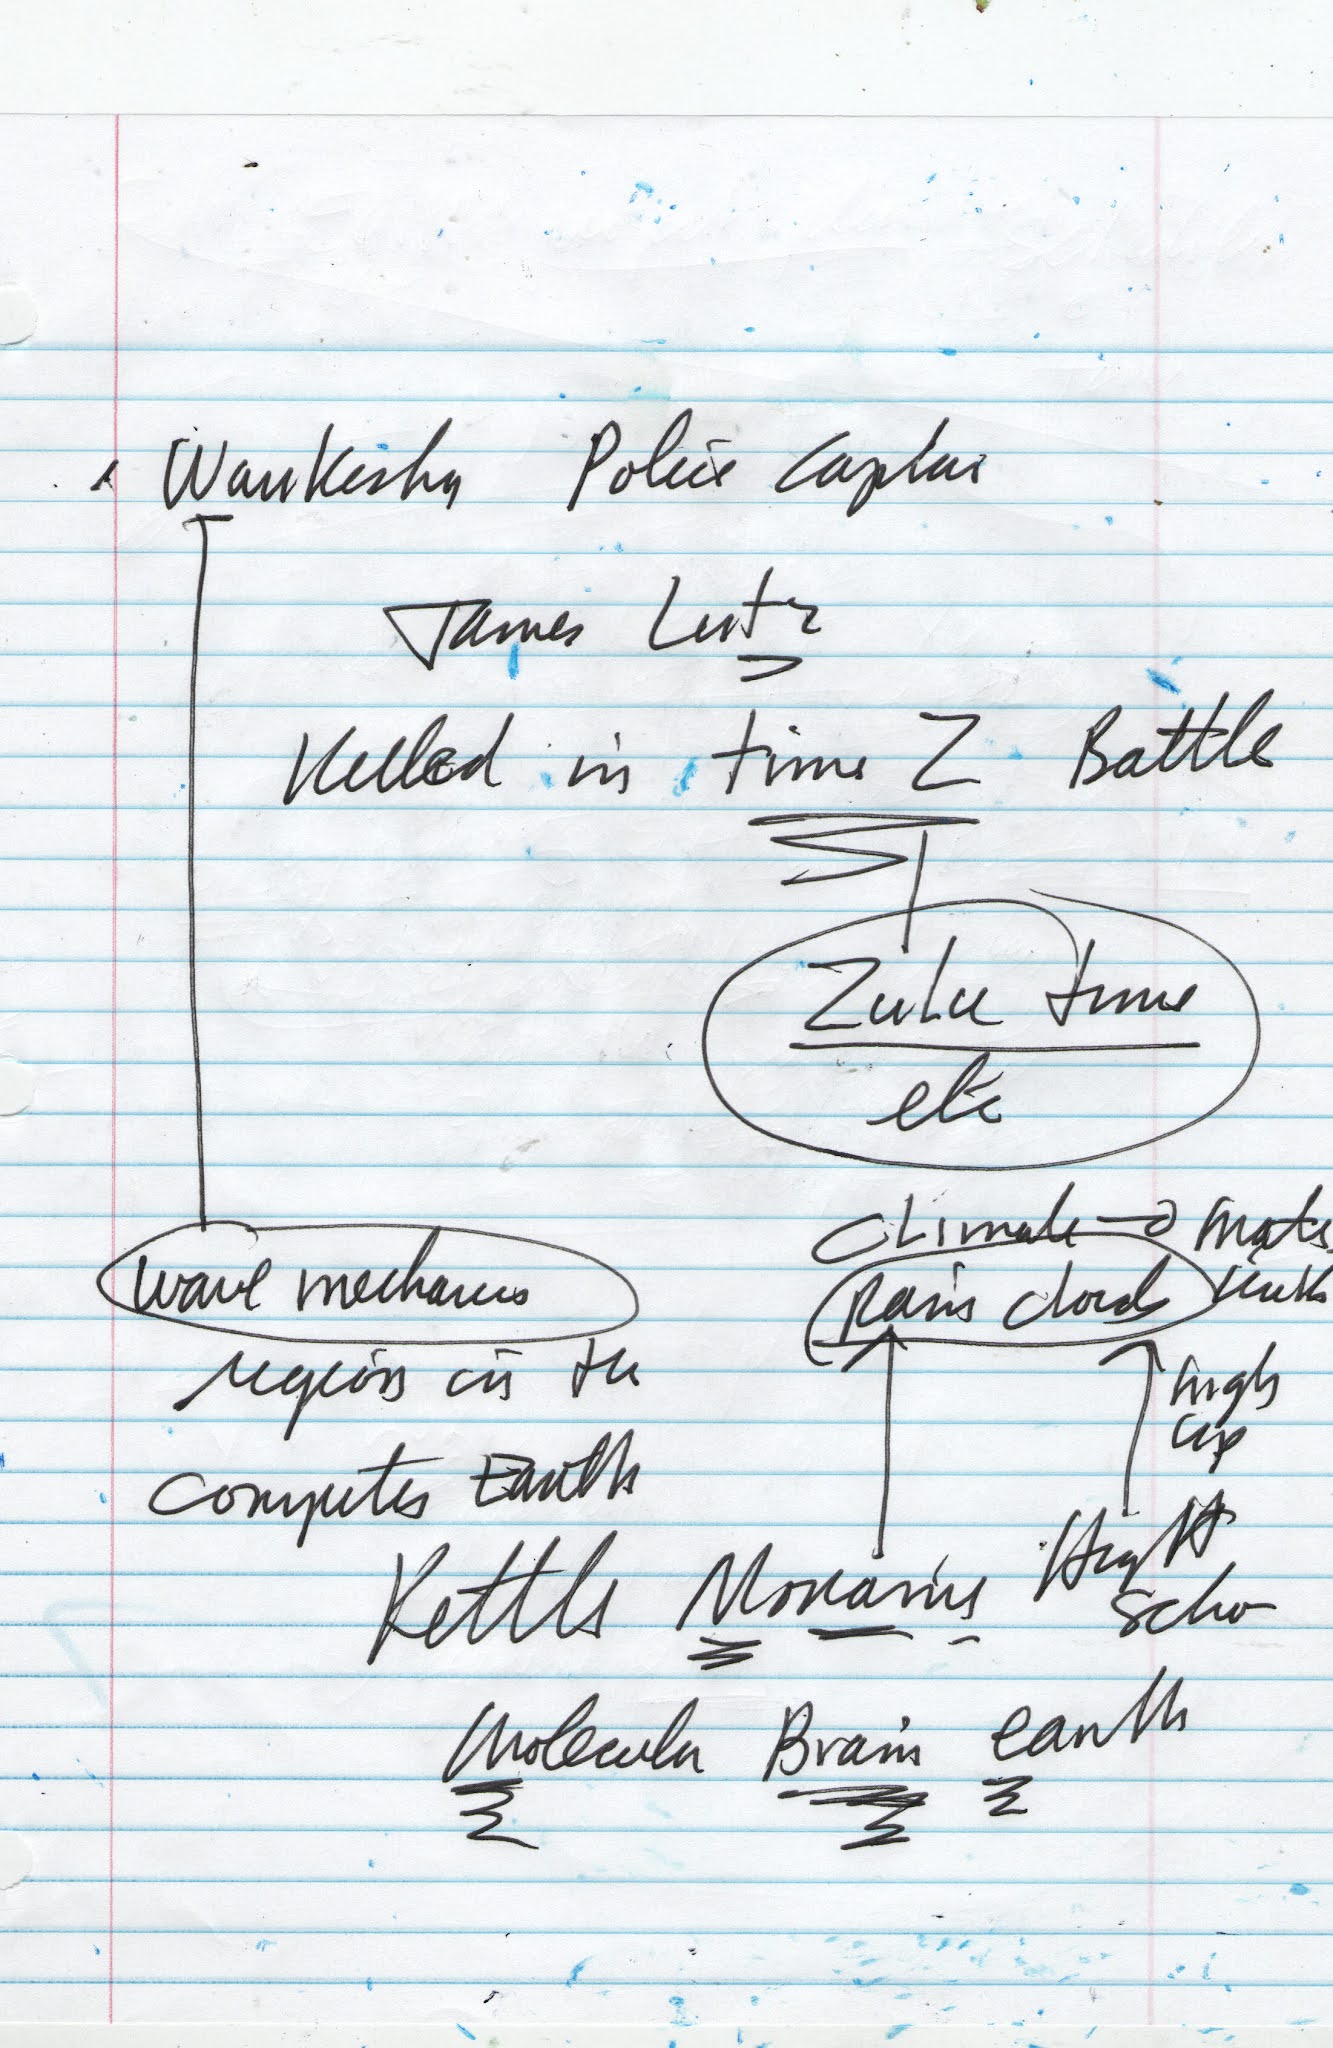 Waukesha Police Captai
James Lutz
Killed in time Z Battle
Zulu time
etc
Climate → math
Rain clouds
wave mechanics
region in the
high
up
Computer Earth
Kettle Moraine
Hight
Scho
Molecular Brain earth